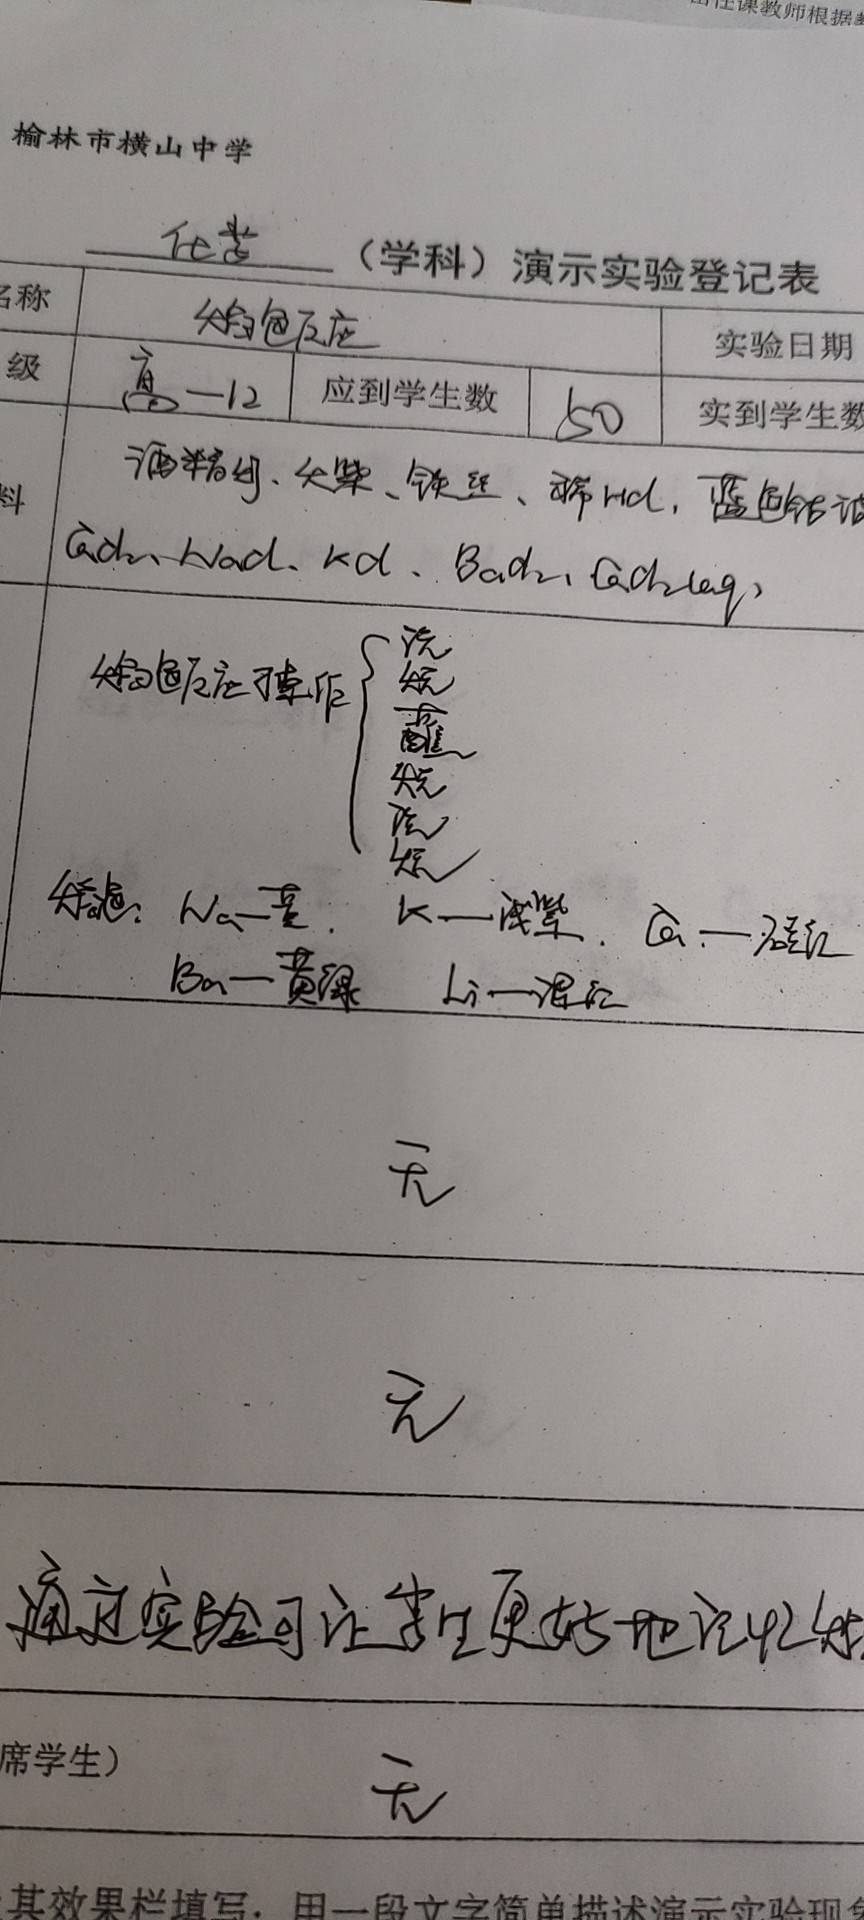 出任课教师根据
榆林市横山中学
化学（学科）演示实验登记表
名称 焰色反应 实验日期
级 高一12 应到学生数 50 实到学生数
料 酒精灯、火柴、铁丝、稀HCl, 蓝色钴玻
CaCl₂、NaCl、KCl、BaCl₂、CaCl₂(aq)
焰色反应操作
洗
烧
蘸
烧
洗
烧
焰色: Na—黄. K—浅紫. Ca—砖红
Ba—黄绿 Li—深红
无
无
通过实验可让学生更好地记忆焰
席学生） 无
其效果栏填写: 用一段文字简单描述演示实验现象